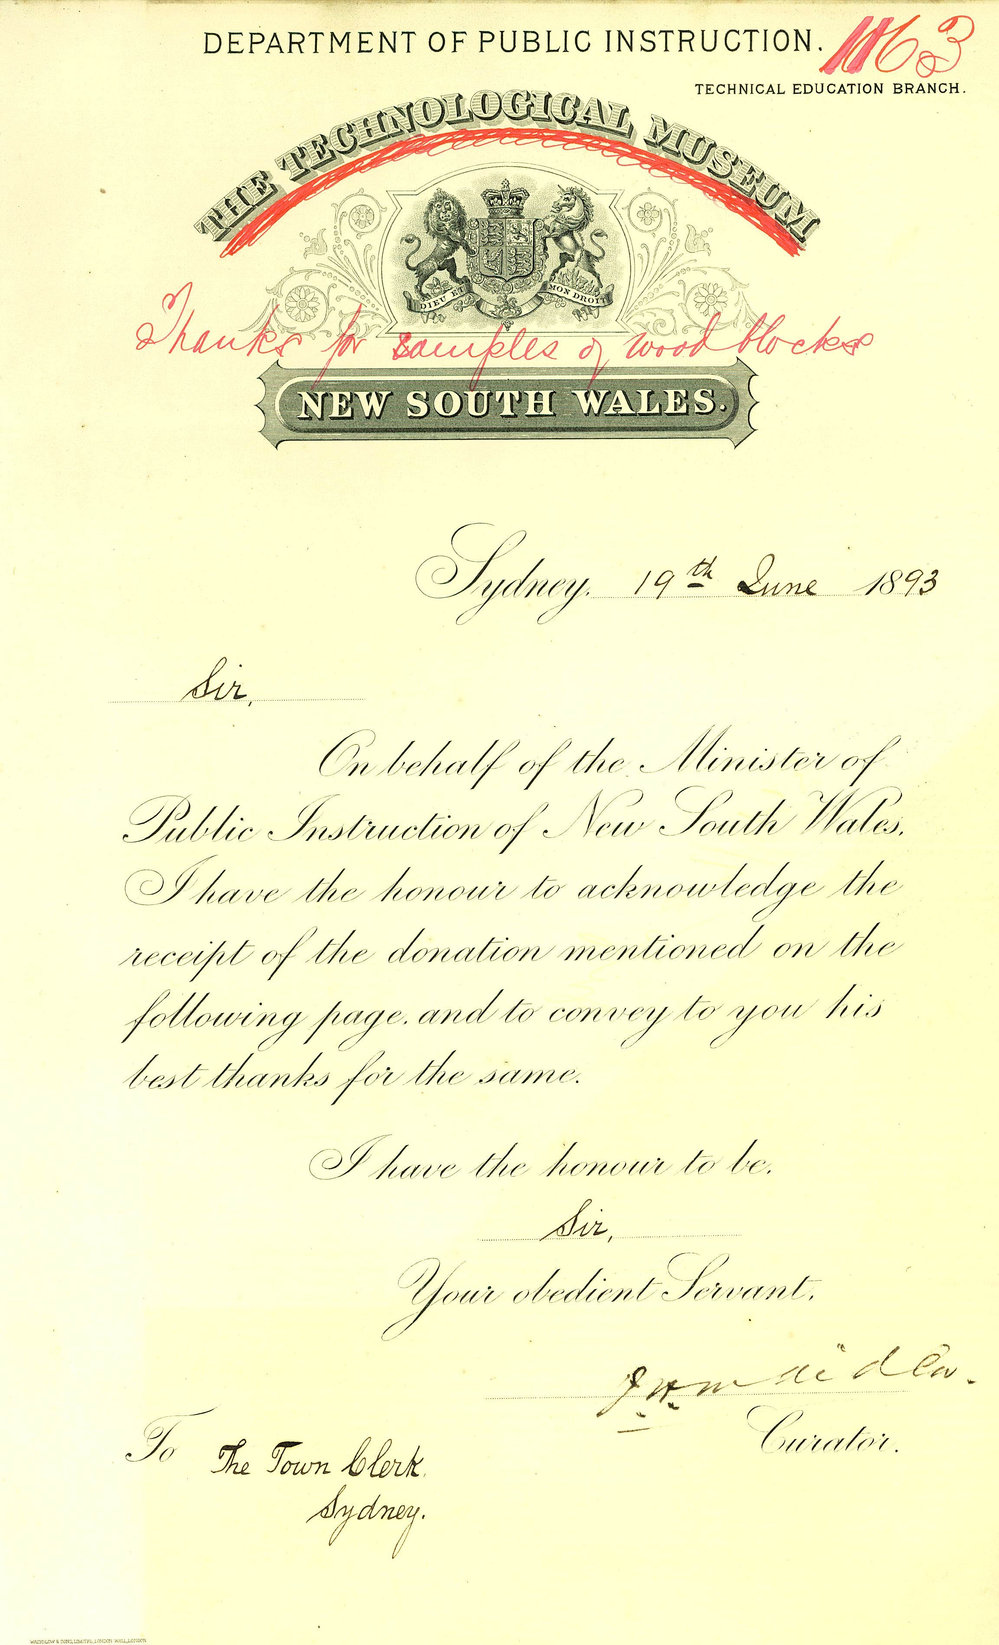 DEPARTMENT OF PUBLIC INSTRUCTION.
63
TECHNICAL EDUCATION BRANCH.
THE TECHNOLOGICAL MUSEUM
DIEU ET MON DROIT
Thanks for samples of wood blocks
NEW SOUTH WALES.
Sydney, 19th June 1893
Sir,
On behalf of the Minister of
Public Instruction of New South Wales,
I have the honour to acknowledge the
receipt of the donation mentioned on the
following page, and to convey to you his
best thanks for the same.
I have the honour to be,
Sir,
Your obedient Servant,
J H Maiden.
Curator.
To The Town Clerk
Sydney.